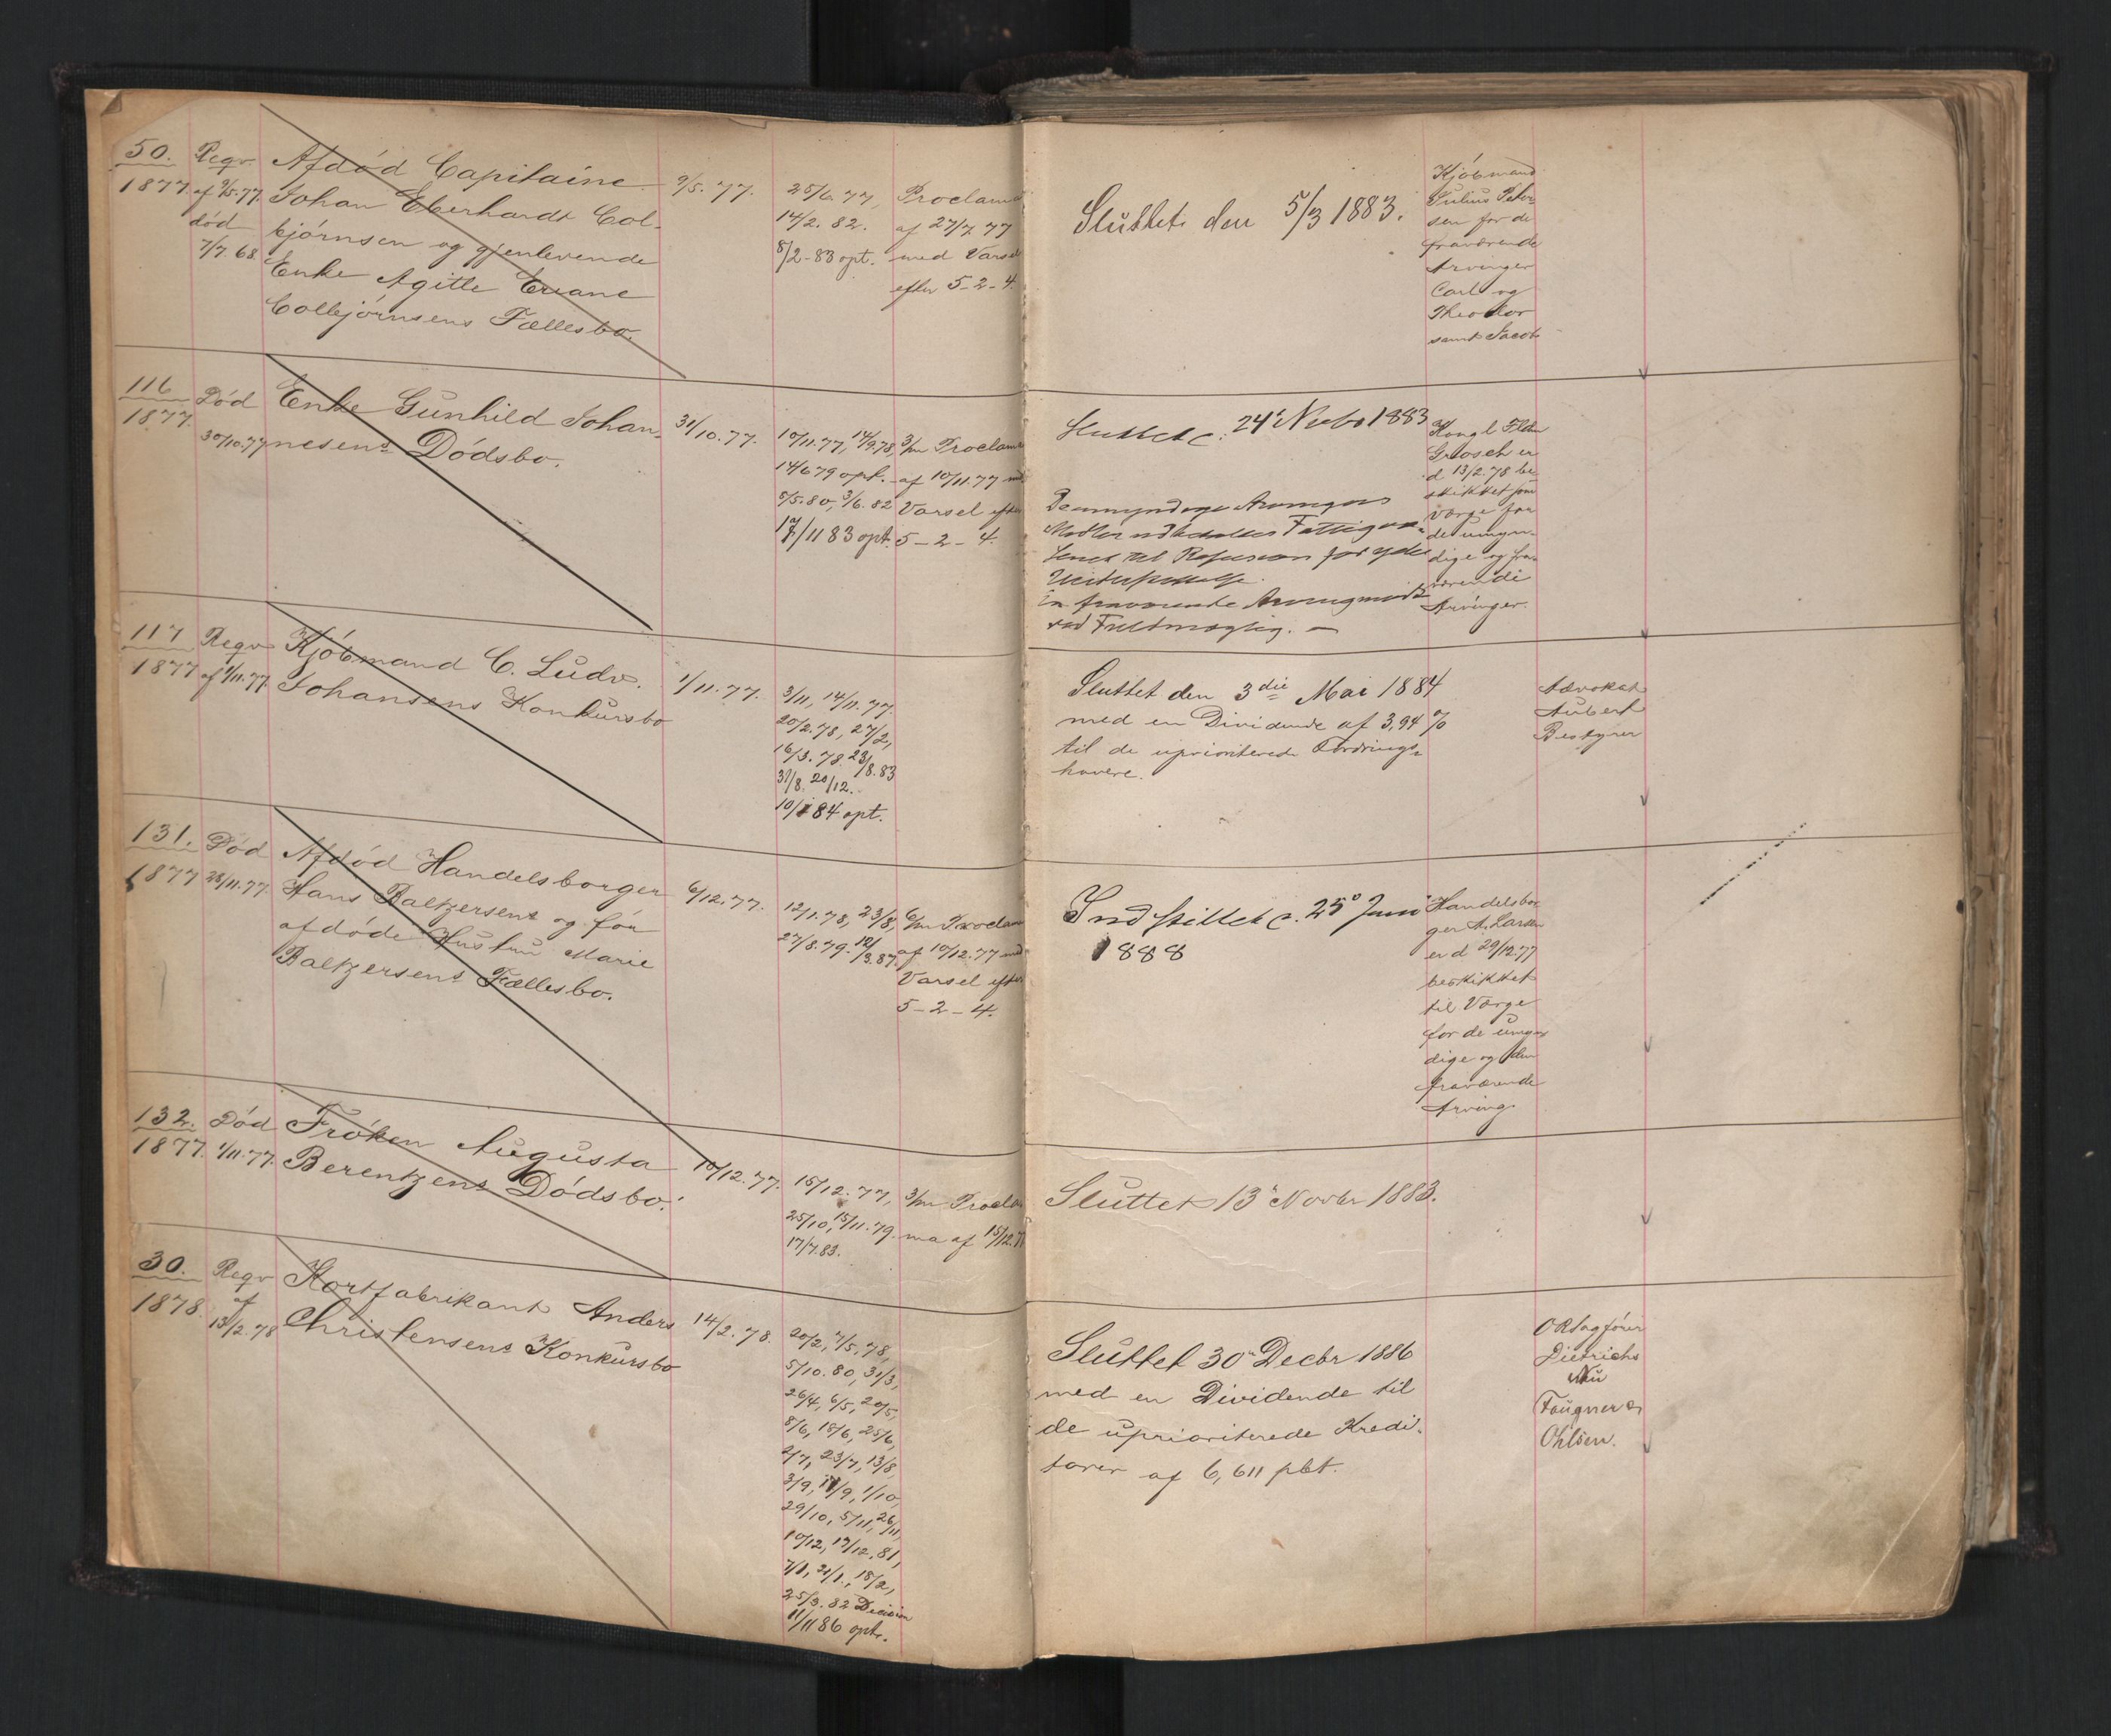 50.
1877.
Reqv.
af 9/5.77.
död
7/7. 68.
Afdöd Capitaine
Johan Eberhardt Col-
bjørnsen og gjenlevende
Enke Agitte
Colbjørnsens Fællesbo.
9/5. 77.
25/6. 77,
14/2. 82.
8/2-83 opt.
Proclama
af 27/7 77
med Varsel
efter 5-2-4.
Sluttet den 5/3 1883.
Kjöbmand
Julius Peter-
sen for de
fraværende
Arvinger
Carl og
Theodor
samt Jacob
116
1877.
Död
30/10.77
Enke Gunhild Johan-
nesens Dödsbo.
31/10. 77.
10/11.77, 14/9.78,
14/6 79 opt.
5/5.80, 3/6. 82
17/11 83 opt.
3/m Proclama
af 10/11.77 med
Varsel efter
5-2-4.
Sluttet d. 24 Novbr 1883
De umyndige Arvingers
Midler udbetales Fattigvæ-
senet til Refusion for ydet
Understøttelse.
En fraværende Arving
ved Fuldmægtig.
Kongl Fldm
Grosch er
d 13/2.78 be-
skikket som
Værge for
de umyn-
dige og fra-
værende
Arvinger.
117
1877
Reqv
af 1/11.77.
Kjöbmand C. Ludv.
Johansens Konkursbo
1/11. 77.
3/11, 14/11. 77.
20/2.78, 27/2,
16/3. 78. 23/8.83
31/8. 20/12.
10/1 84 opt.
Sluttet den 3die Mai 1884
med en Dividende af 3,94 %
til de uprioriterede Fordrings-
havere.
Advokat
Aubert
Bestyrer
131.
1877
Död
23/11.77.
Afdöd Handelsborger
Hans Baltzersens og för
afdöde Hustru Marie
Baltzersens Fællesbo.
6/12. 77.
12/1. 78, 23/8,
27/8. 79. 12/3.87.
6/m Proclama
af 10/12.77 med
Varsel efter
5-2-4.
Indstillet d. 25 Juni
1888
Handelsbor-
ger A. Larsen
er d 29/12.77
beskikket
til Værge
for de umyn-
dige og den
fraværende
Arving
132.
1877.
Död
1/11.77.
Fröken Augusta
Berentzens Dödsbo.
10/12. 77.
15/12. 77,
25/10, 15/11.79.
17/7.83.
3/m Procla-
ma af 15/12.77
Sluttet 13 Novbr 1883.
30.
1878.
Reqv
af
13/2. 78
Kortfabrikant Anders
Christensens Konkursbo
14/2. 78.
20/2, 7/5. 78,
5/10. 80, 31/3,
26/4, 6/5, 20/5,
8/6, 18/6, 25/6,
2/7, 23/7, 13/8,
3/9, 17/9, 1/10,
29/10, 5/11, 26/11,
10/12, 17/12. 81,
7/1, 21/1, 18/2,
25/3. 82 Decision
11/11 86 opt.
Sluttet 30 Decbr 1886
med en Dividende til
de uprioriterede Kredi-
torer af 6,611 pCt.
ORsagfører
Dietrichs
Nu
Faugner &
Ohlsen.